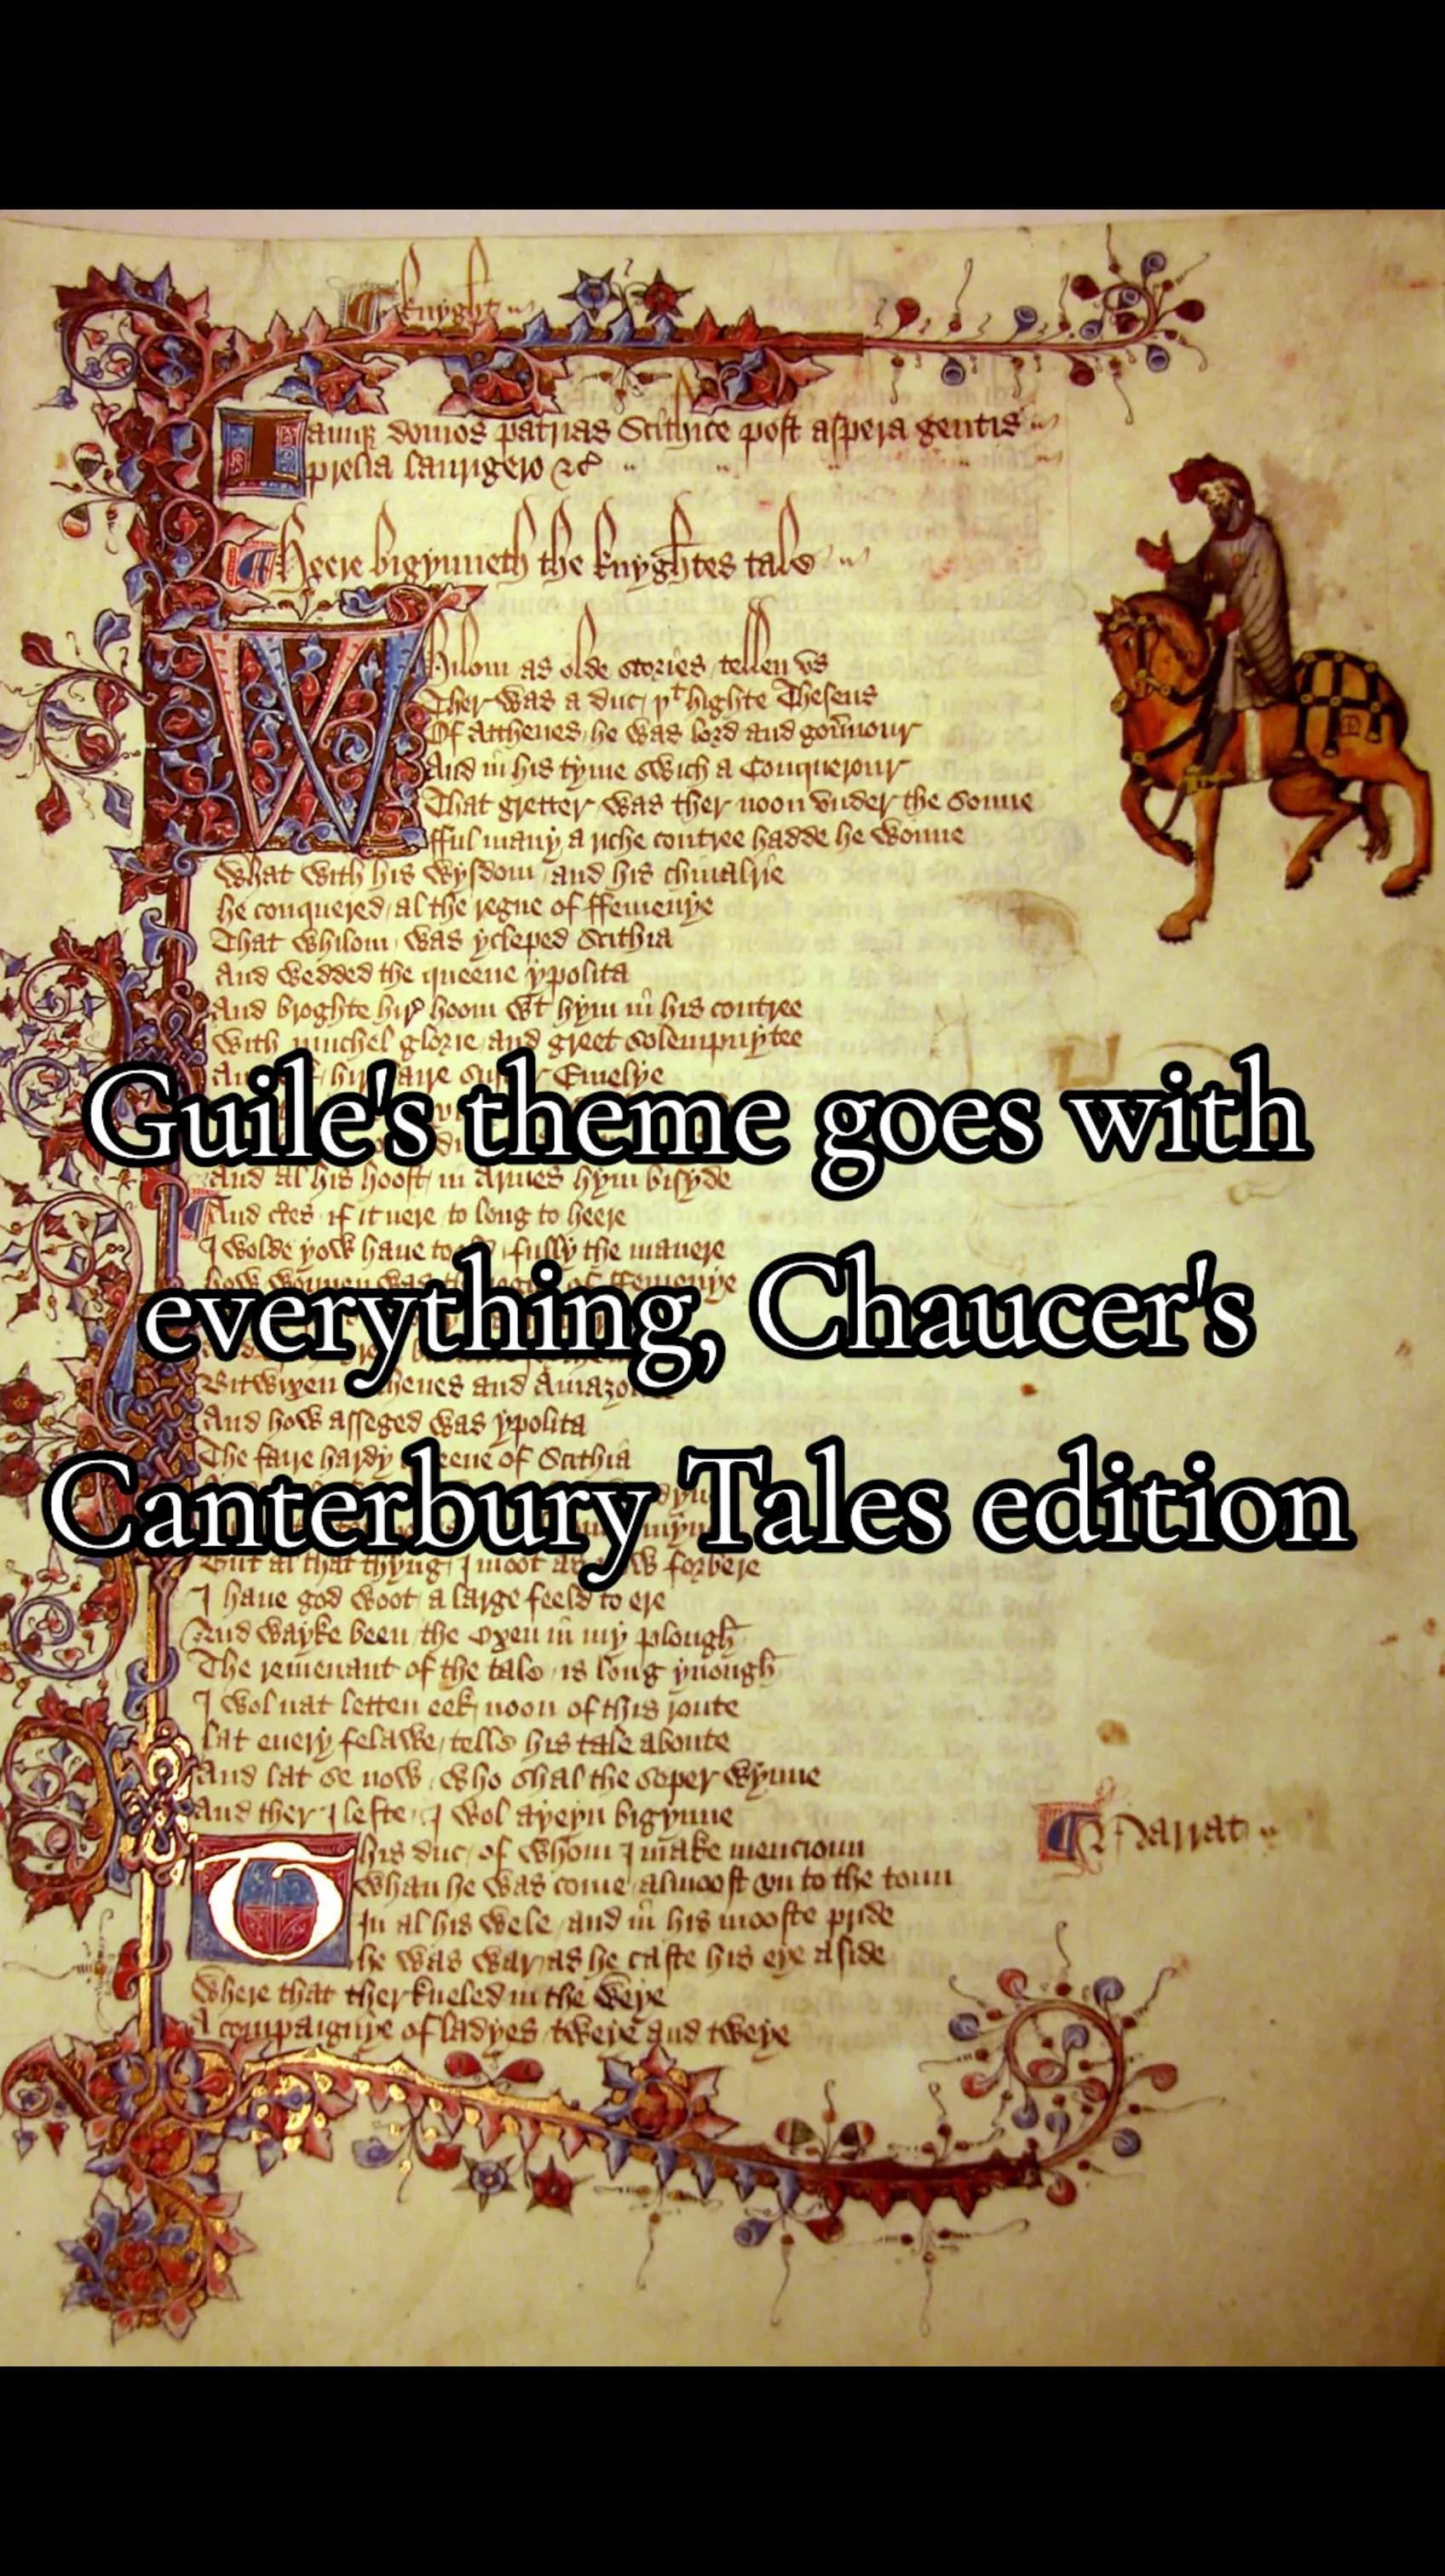 knyght
Iamque domos patrias Scithice post aspera gentis
prelia laurigero &c
Heere bigynneth the knyghtes tale
Whilom as olde stories tellen vs
Ther was a duc þt highte Theseus
Of Atthenes he was lord and gouernour
And in his tyme swich a Conquerour
That gretter was ther noon vnder the sonne
fful many a riche contree hadde he wonne
What with his wysdom and his chiualrie
he conquered al the regne of ffemenye
That whilom was ycleped Scithia
And wedded the queene ypolita
And broghte hir hoom wt hym in his contree
With muchel glorie and greet solempnytee
Emelye
Guile's theme goes with
And al his hoost in Armes hym bisyde
And certes if it nere to long to heere
I wolde yow haue fully the manere
of ffemenye
everything, Chaucer's
Bitwixen and
And how asseged was ypolita
The faire hardy queene of Scithia
Canterbury Tales edition
But al that thyng I moot as forbere
I haue god woot a large feeld to ere
And wayke been the Oxen in my plough
The remenant of the tale is long ynough
I wol nat letten eek noon of this route
lat euery felawe telle his tale aboute
And lat se now who shal the soper wynne
And ther I lefte I wol ayeyn bigynne
This duc of whom I make mencioun
Narrat
Whan he was come almoost vn to the toun
In al his wele and in his mooste pride
he was war as he caste his eye aside
Where that ther kneled in the weye
A compaignye of ladyes tweye and tweye